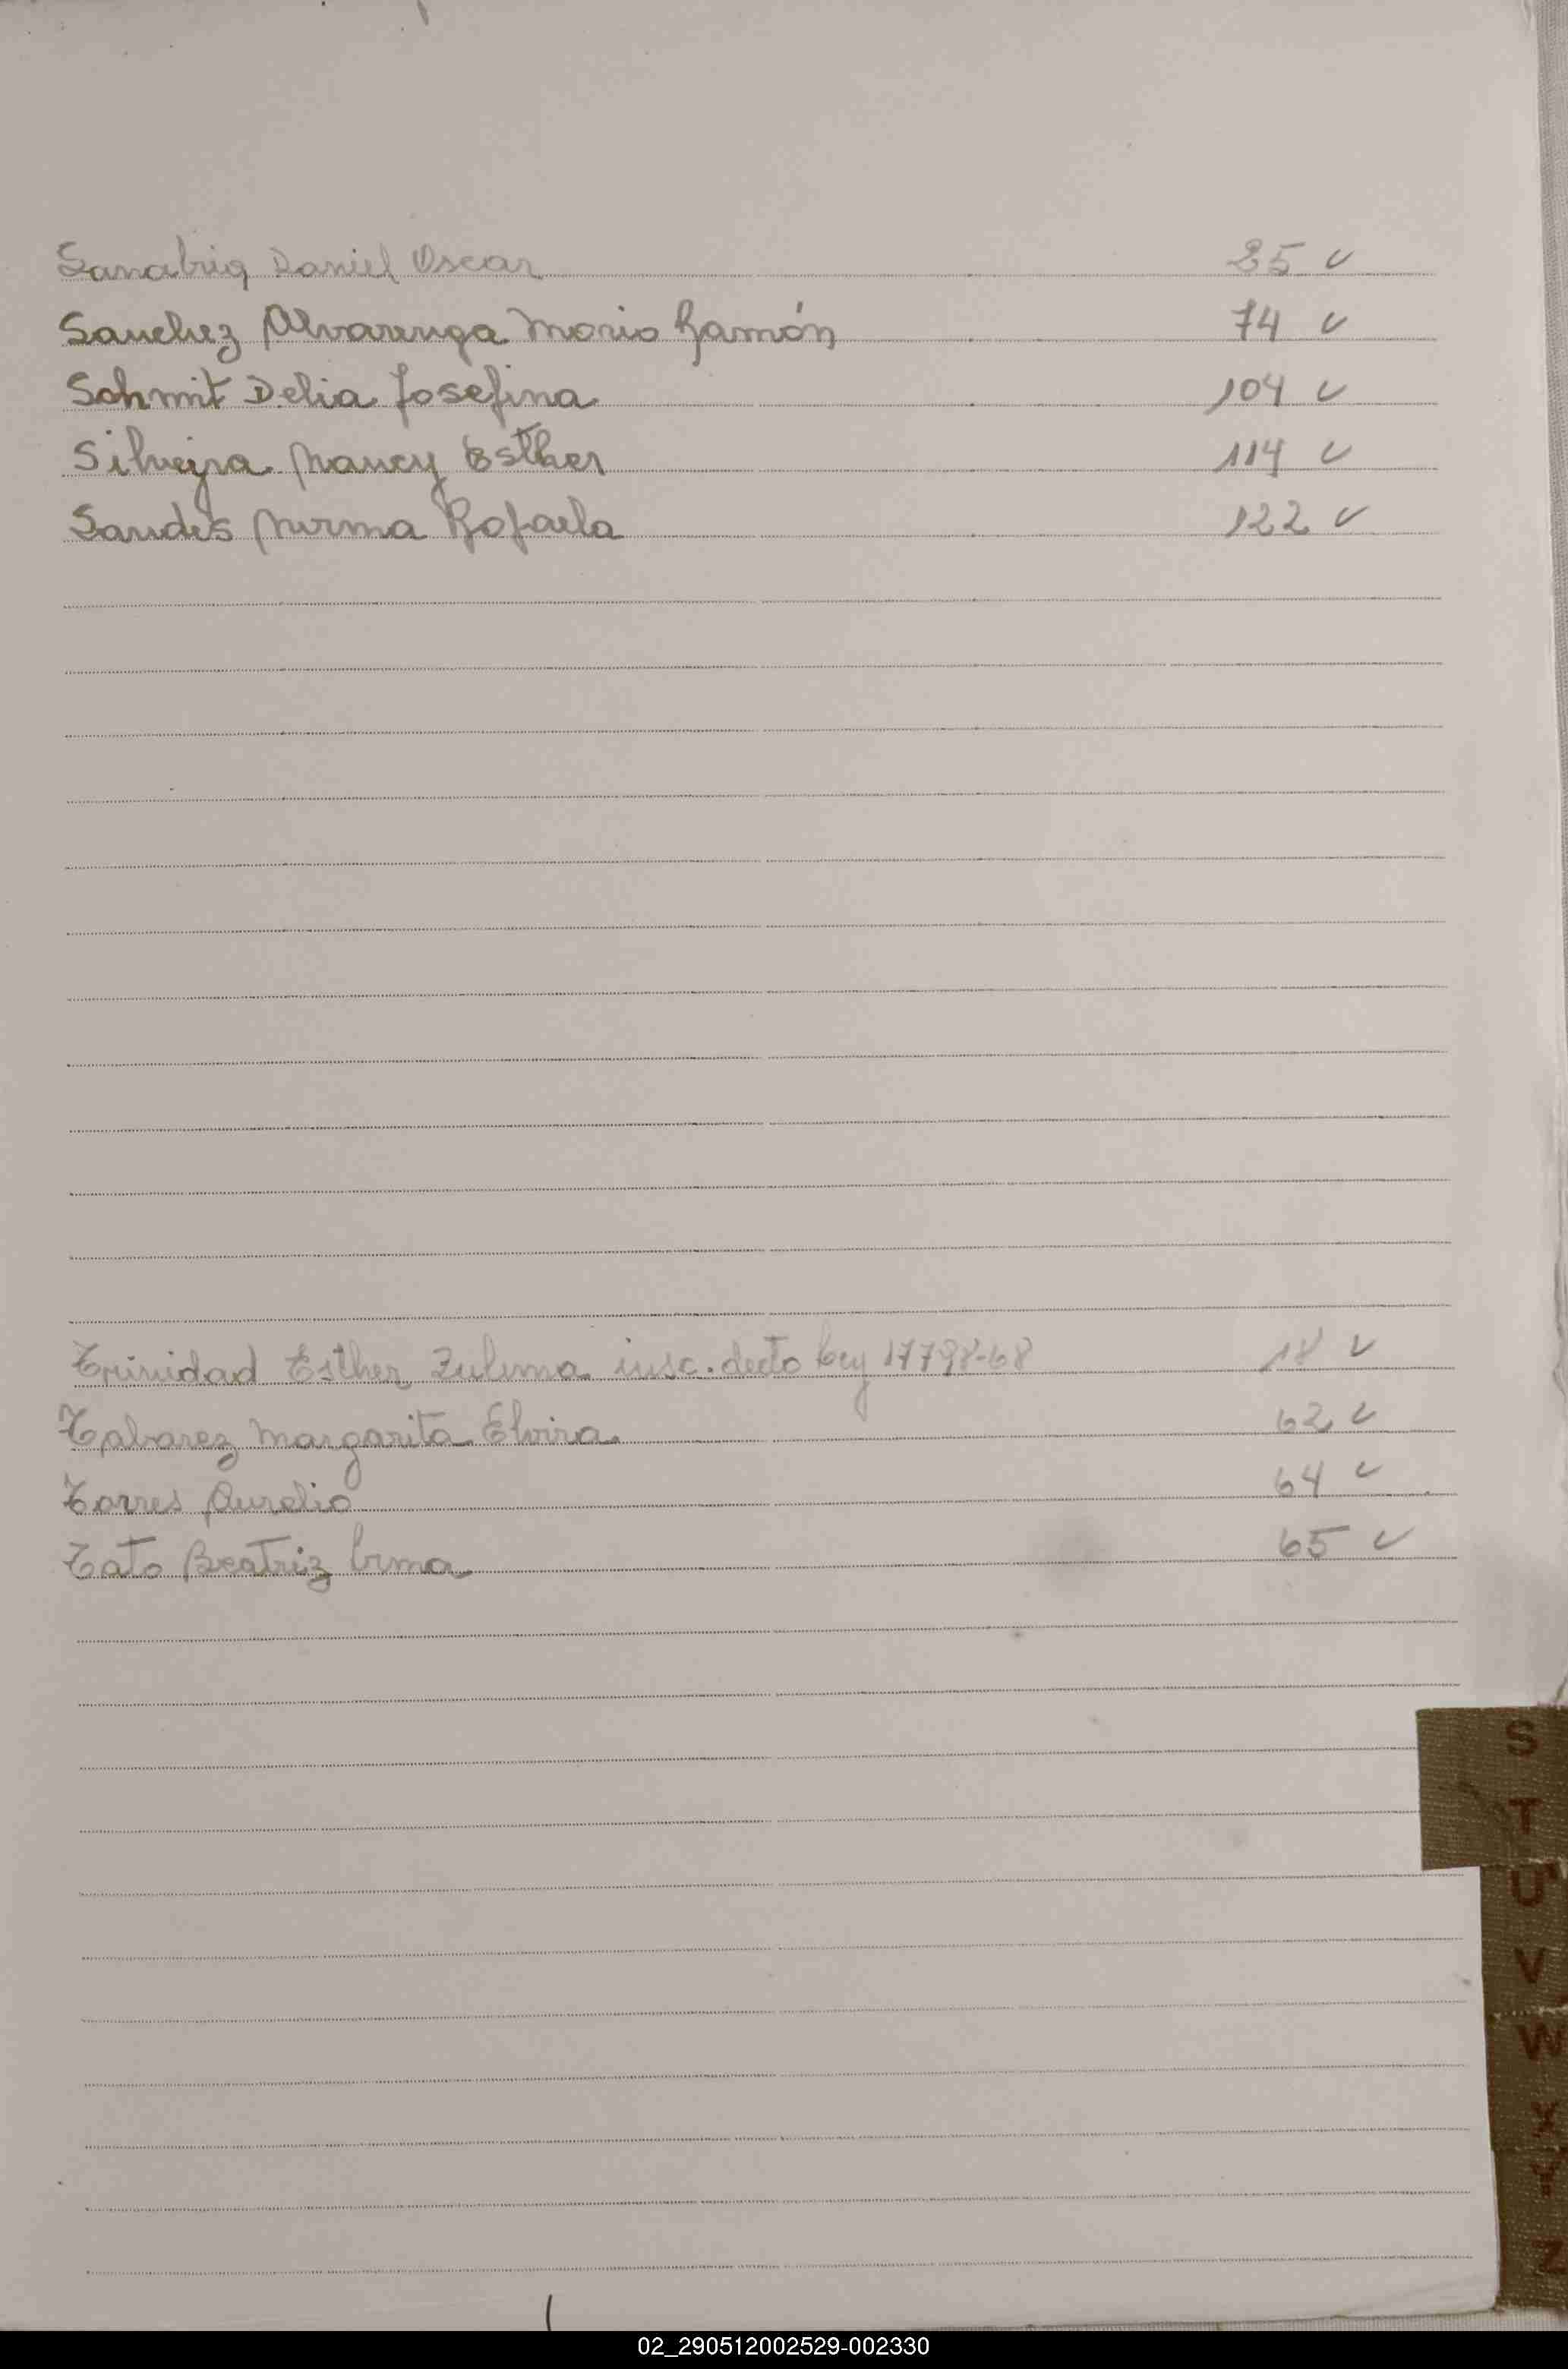 Sanabria Daniel Oscar 25 ✓
Sanchez Alvarenga Mario Ramón 74 ✓
Schmit Delia Josefina 104 ✓
Silveira Nancy Esther 114 ✓
Sandes Norma Rafaela 122 ✓
Trinidad Esther Zulema insc. decto Ley 17798-68 18 ✓
Tabarez Margarita Elvira 62 ✓
Torres Aurelio 64 ✓
Tato Beatriz Irma 65 ✓
S
T
U
V
W
X
Y
Z
02_290512002529-002330